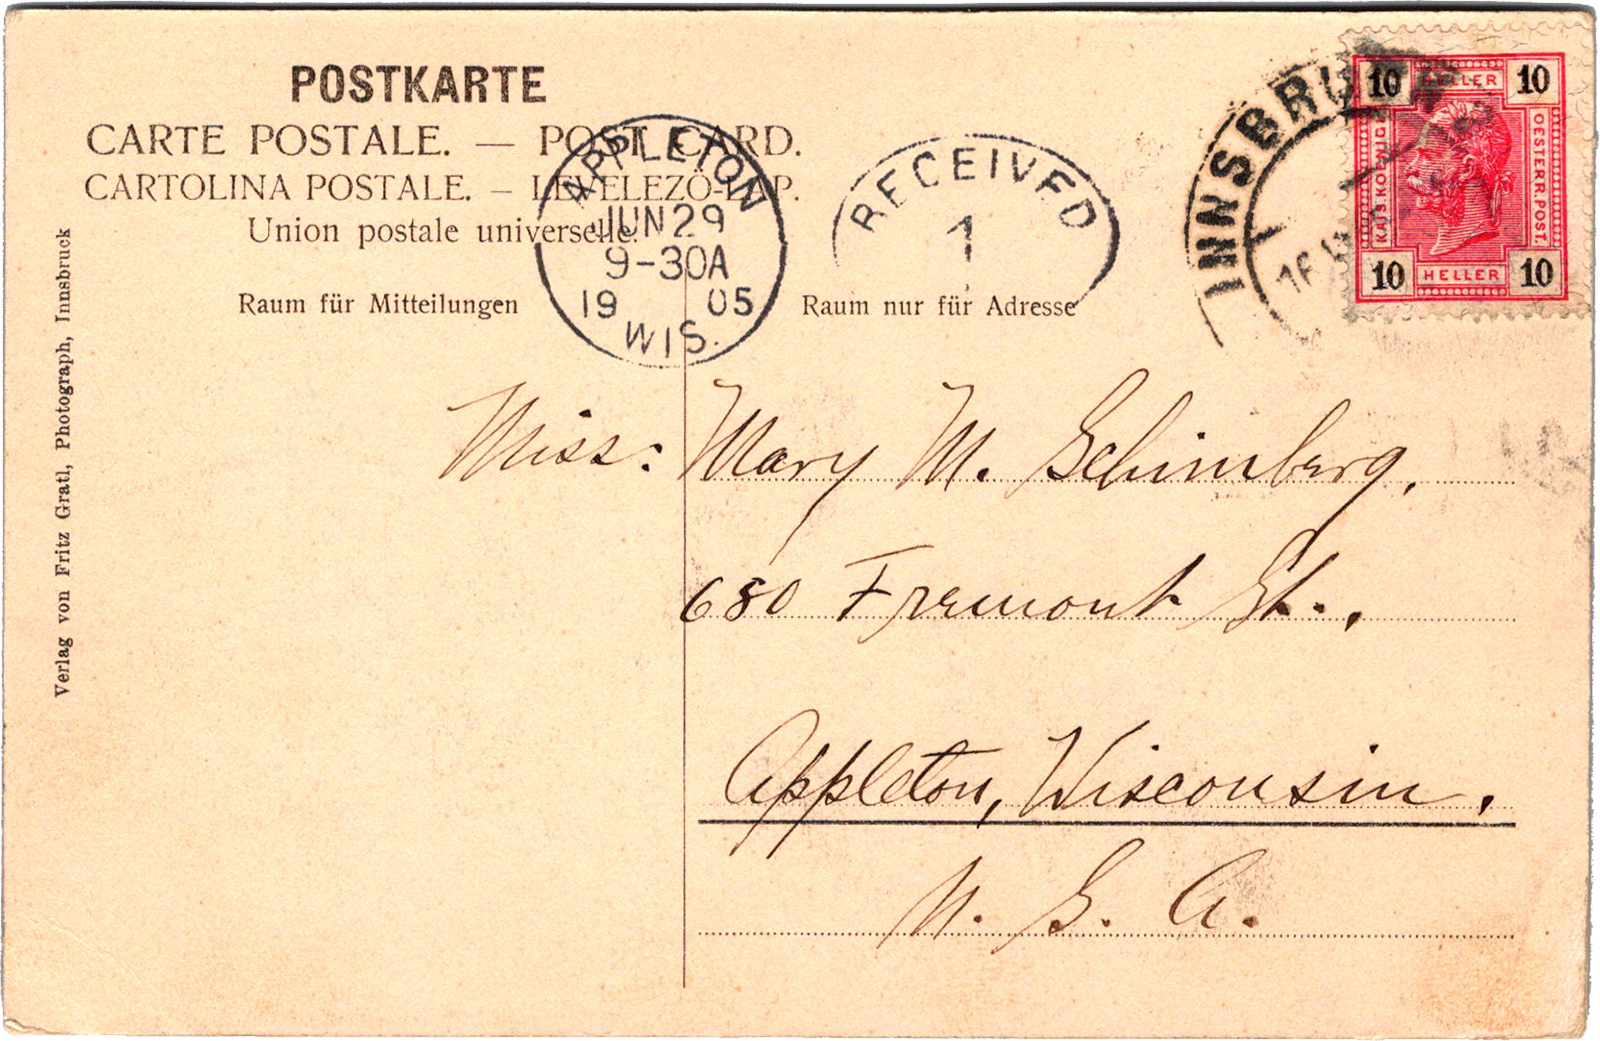 POSTKARTE
CARTE POSTALE. — POST CARD.
CARTOLINA POSTALE. — LEVELEZŐ-LAP.
Union postale universelle.
Raum für Mitteilungen
Raum nur für Adresse
APPLETON
JUN 29
9-30A
19 05
WIS.
RECEIVED
1
INNSBRUCK
10 HELLER 10
KAIS. KÖNIGL.
OESTERR. POST.
10 HELLER 10
Verlag von Fritz Gratl, Photograph, Innsbruck
Miss: Mary M. Schimberg,
680 Fremont St.,
Appleton, Wisconsin.
U. S. A.